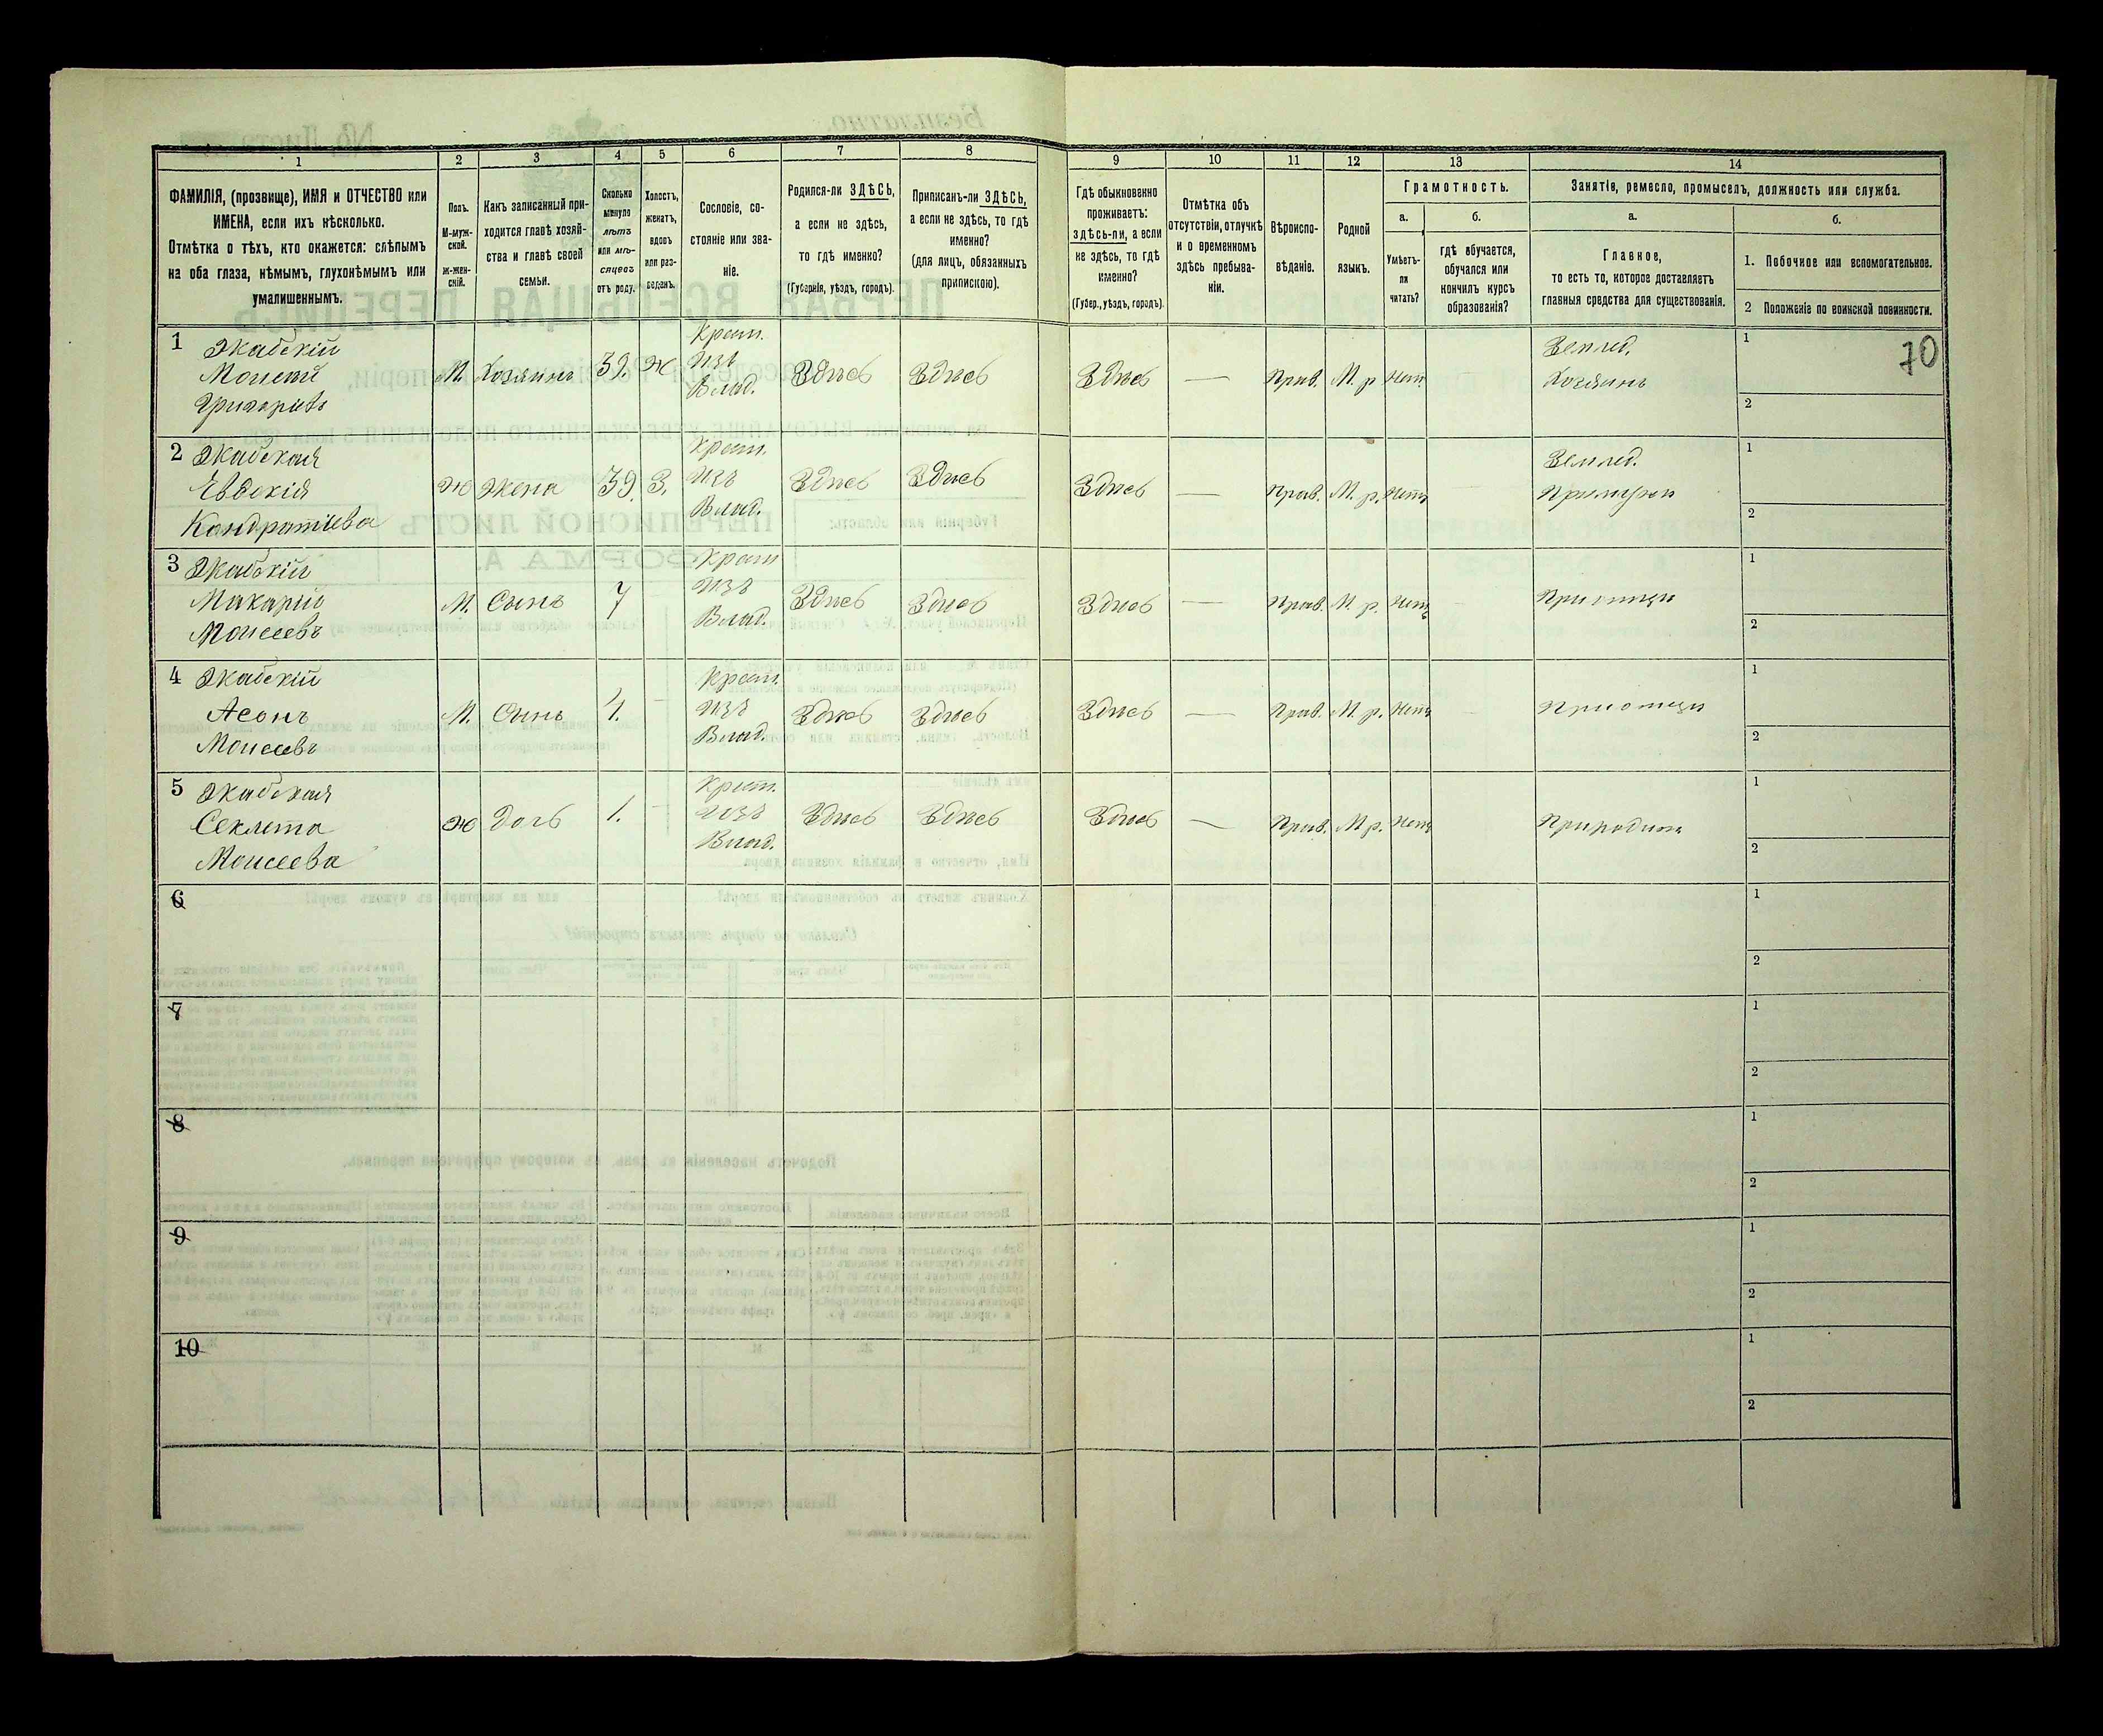 1
2
3
4
5
6
7
8
ФАМИЛІЯ, (прозвище), ИМЯ и ОТЧЕСТВО или
ИМЕНА, если ихъ нѣсколько.
Отмѣтка о тѣхъ, кто окажется: слѣпымъ
на оба глаза, нѣмымъ, глухонѣмымъ или
умалишеннымъ.
Полъ.
М-муж-
ской.
ж-жен-
скій.
Какъ записанный при-
ходится главѣ хозяй-
ства и главѣ своей
семьи.
Сколько
минуло
лѣтъ
или мѣ-
сяцевъ
отъ роду.
Холостъ,
женатъ,
вдовъ
или раз-
веденъ.
Сословіе, со-
стояніе или зва-
ніе.
Родился-ли ЗДѢСЬ,
а если не здѣсь,
то гдѣ именно?
(Губернія, уѣздъ, городъ).
Приписанъ-ли ЗДѢСЬ,
а если не здѣсь, то гдѣ
именно?
(для лицъ, обязанныхъ
припискою).
9
10
11
12
13
14
Гдѣ обыкновенно
проживаетъ:
здѣсь-ли, а если
не здѣсь, то гдѣ
именно?
(Губер., уѣздъ, городъ).
Отмѣтка объ
отсутствіи, отлучкѣ
и о временномъ
здѣсь пребыва-
ніи.
Вѣроиспо-
вѣданіе.
Родной
языкъ.
Грамотность.
а.
Умѣетъ-
ли
читать?
б.
гдѣ обучается,
обучался или
кончилъ курсъ
образованія?
Занятіе, ремесло, промыселъ, должность или служба.
а.
Главное,
то есть то, которое доставляетъ
главныя средства для существованія.
б.
1. Побочное или вспомогательное.
2 Положеніе по воинской повинности.
70
1
Моисей
Григорьевъ
М.
Хозяинъ
39.
Ж
Крест.
изъ
Влад.
Здѣсь
Здѣсь
Здѣсь
—
Прав.
М. р
Нетъ
Землед.
Хозяинъ
1
2
2
Евдокія
Кондратіева
Ж
Жена
39.
З.
Крест.
изъ
Влад.
Здѣсь
Здѣсь
Здѣсь
—
Прав.
М. р.
Нетъ
Землед.
1
2
3
Макарій
Моисеевъ
М.
Сынъ
7
Крест
изъ
Влад.
Здѣсь
Здѣсь
Здѣсь
—
Прав.
М. р.
Нетъ
При отцѣ
1
2
4
Моисеевъ
М.
Сынъ
Крест.
изъ
Влад.
Здѣсь
Здѣсь
Здѣсь
—
Прав.
М. р.
Нетъ
При отцѣ
1
2
5
Секлета
Моисеева
Ж
Дочь
1.
Крест.
изъ
Влад.
Здѣсь
Здѣсь
Здѣсь
—
Прав.
М р.
Нетъ
1
2
6
1
2
7
1
2
8
1
2
9
1
2
10
1
2